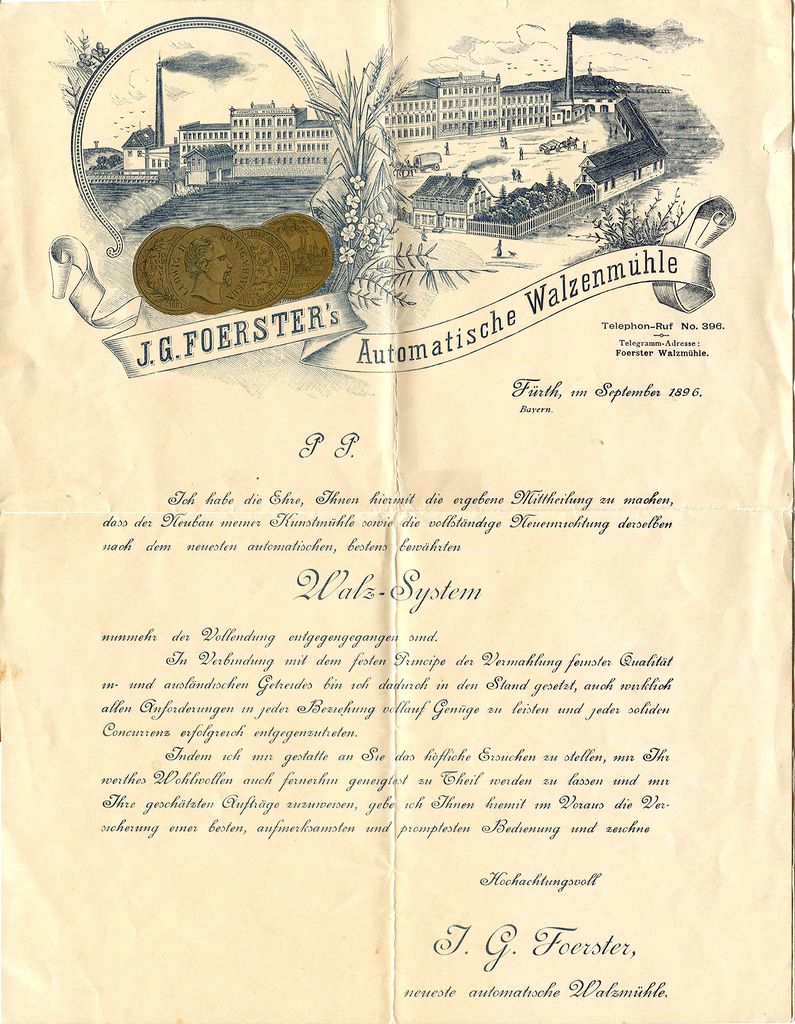 J. G. FOERSTER's
Automatische Walzenmühle
Telephon-Ruf No. 396.
Telegramm-Adresse:
Foerster Walzmühle.
Fürth, im September 1896.
Bayern.
P P.
Ich habe die Ehre, Ihnen hiermit die ergebene Mittheilung zu machen,
dass der Neubau meiner Kunstmühle sowie die vollständige Neueinrichtung derselben
nach dem neuesten automatischen, bestens bewährten
Walz-System
nunmehr der Vollendung entgegengegangen sind.
In Verbindung mit dem festen Principe der Vermahlung feinster Qualität
in- und ausländischen Getreides bin ich dadurch in den Stand gesetzt, auch wirklich
allen Anforderungen in jeder Beziehung vollauf Genüge zu leisten und jeder soliden
Concurrenz erfolgreich entgegenzutreten.
Indem ich mir gestatte an Sie das höfliche Ersuchen zu stellen, mir Ihr
werthes Wohlwollen auch fernerhin geneigtest zu Theil werden zu lassen und mir
Ihre geschätzten Aufträge zuzuweisen, gebe ich Ihnen hiemit im Voraus die Ver-
sicherung einer besten, aufmerksamsten und promptesten Bedienung und zeichne
Hochachtungsvoll
J. G. Foerster,
neueste automatische Walzmühle.